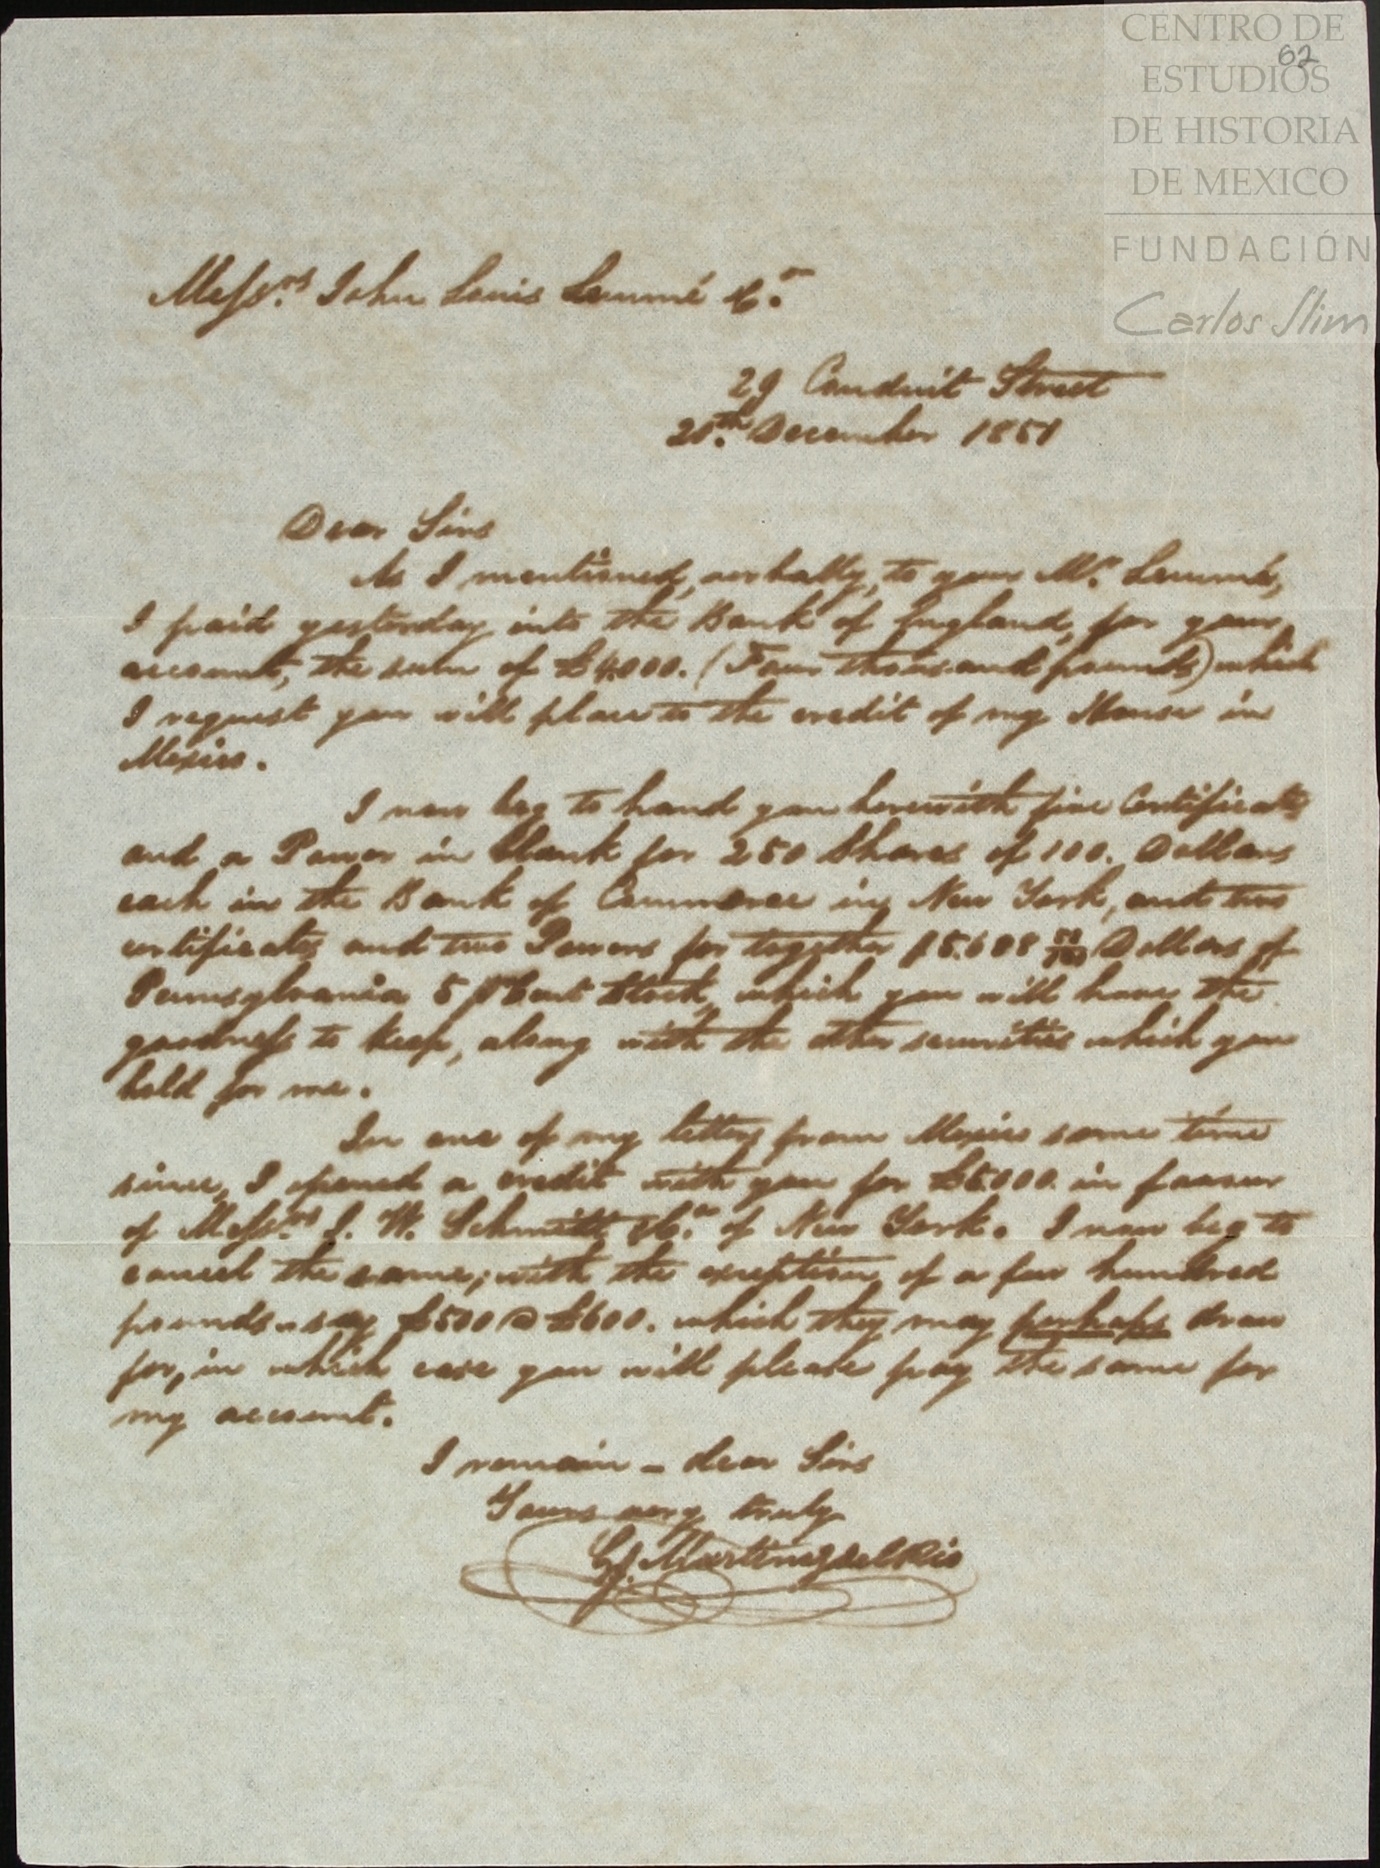 CENTRO DE
ESTUDIOS
DE HISTORIA
DE MEXICO
FUNDACIÓN
Carlos Slim
62
Messrs. John Louis Lemmé & Co.
29 Conduit Street
20th. December 1851
Dear Sirs
As I mentioned, verbally, to your Mr. Lemmé,
I paid yesterday into the Bank of England, for your
account, the sum of £4,000. (Four thousand pounds) which
I request you will place to the credit of my House in
Mexico.
I now beg to hand you herewith five Certificates
and a Power in blank for 250 Shares of 100. Dollars
each in the Bank of Commerce in New York, and two
certificates and two Powers for together $5.608 50/100 Dollars of
Pennsylvania 5 p Cent Stock, which you will have the
goodness to keep, along with the other securities which you
hold for me.
In one of my letters from Mexico some time
since, I opened a credit with you for £5000. in favour
of Messrs. J. W. Schmidt & Co. of New York. I now beg to
cancel the same, with the exception of a few hundred
pounds say £500 @ £600. which they may perhaps draw
for, in which case you will please pay the same for
my account.
I remain - dear Sirs
Yours very truly
G. Martinez del Rio